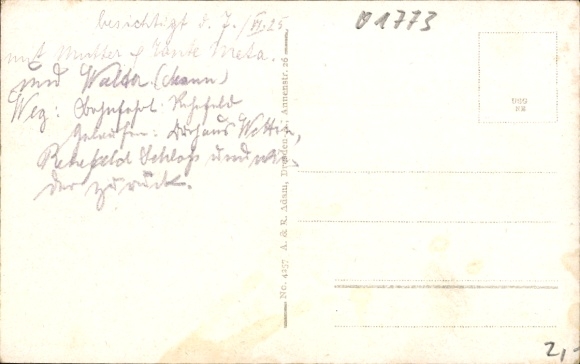 besichtigt d. 7./VI.25
mit Mutter & Tante Meta.
und Walter (Mann)
Weg: Bahnfahrt: Rehefeld
Gelaufen: Wettin,
Rehefeld Schloss und wie-
der zurück.
01773
No. 4257 A. & R. Adam, Dresden-A., Annenstr. 26
2,-